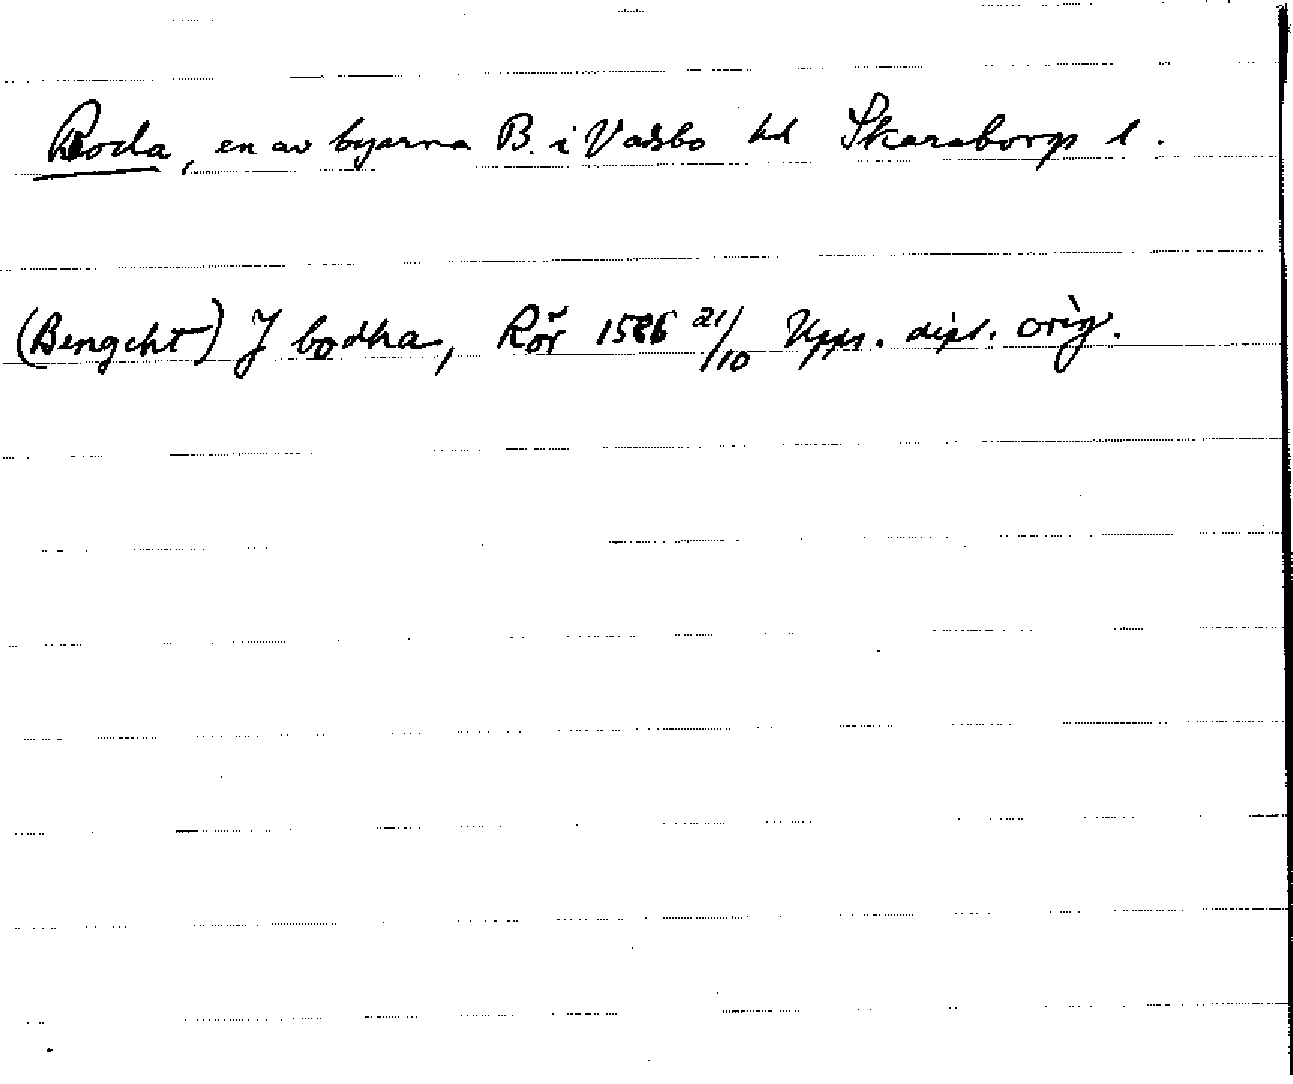 Boda, en av byarna B. i Vadsbo hd Skaraborgs l.
(Bengcht) J bodha, Rör 1526 21/10 Upps. dipl. orig.